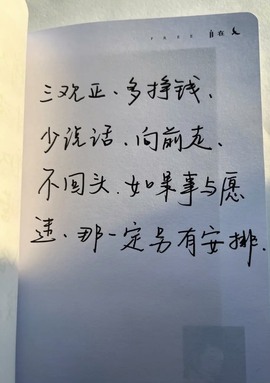 自在
三观正、多挣钱、
少说话、向前走、
不回头.如果事与愿
违、那一定另有安排.